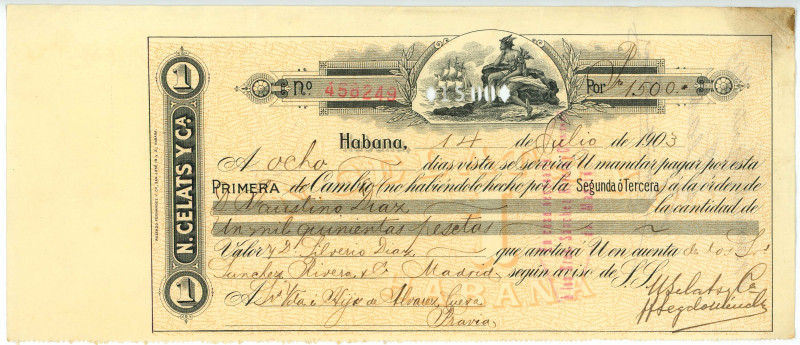 N. CELATS Y Cª.
1
1
Nº 458249
$1500$
Por Pts 1,500.
Habana, 14 de Julio de 1903
A ocho dias vista se servirá U mandar pagar por esta
PRIMERA de Cambio (no habiéndolo hecho por la Segunda ó Tercera) á la orden de
D Faustino Diaz la cantidad de
Un mil quinientas pesetas
Valor Silverio Diaz que anotará U en cuenta de los Sres
Sanchez Rivera y Cª Madrid, según aviso de S.S.
N Celats y Ca
A Sra Vda é Hijo de Alvarez Cueva
Pravia.
HABANA